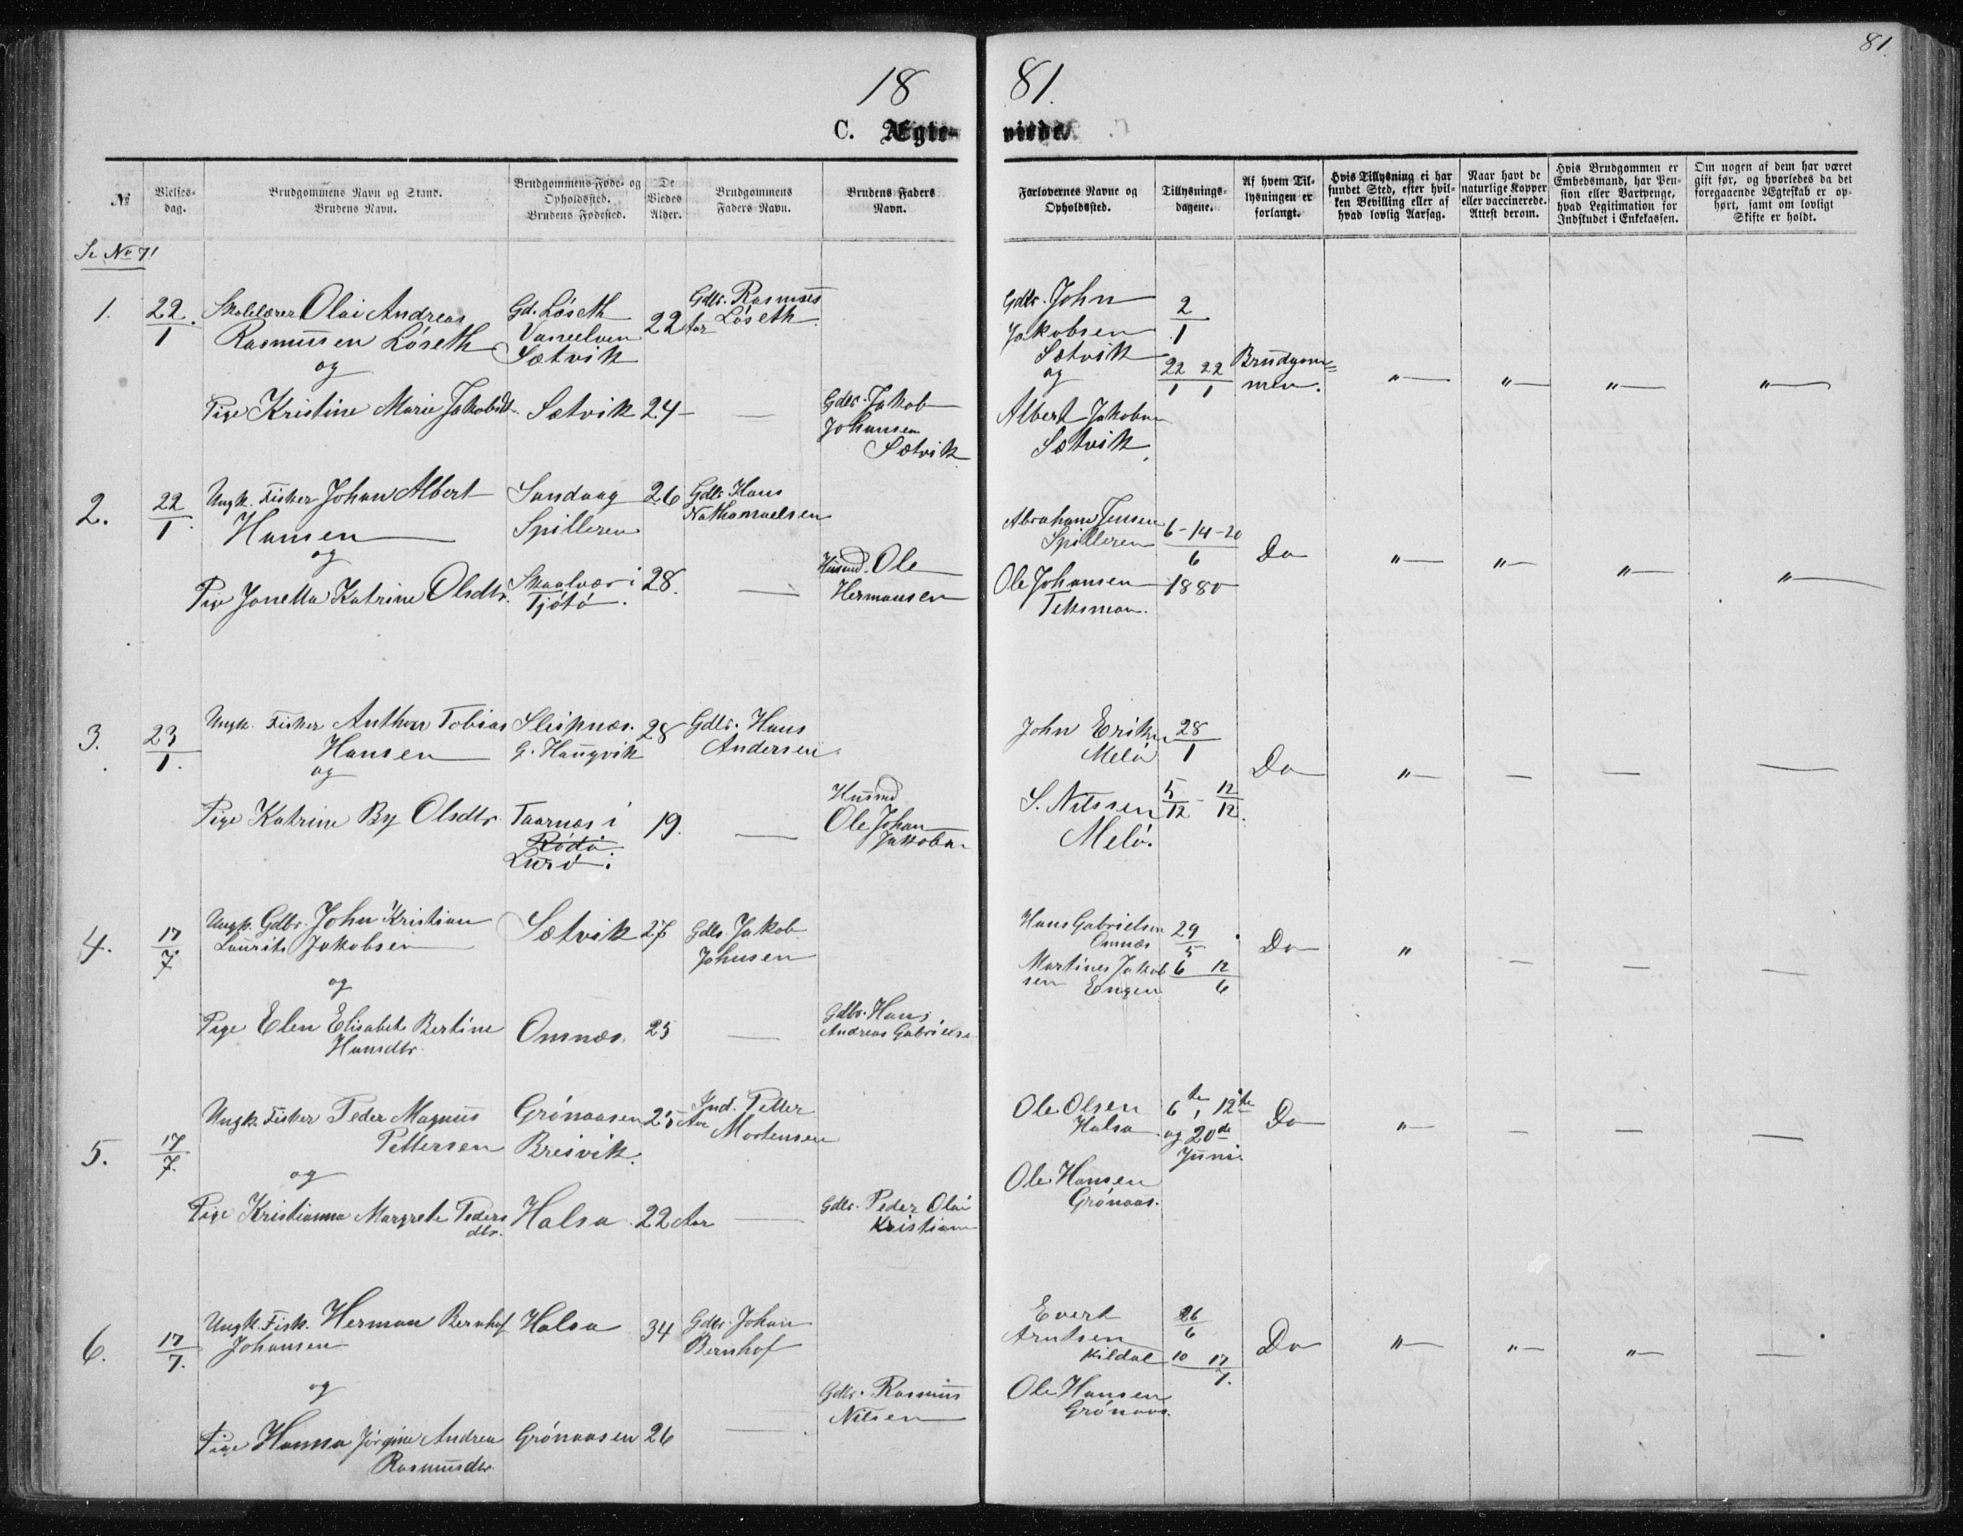 81.
18 81.
C. Ægte- viede.
№
Vielses-
dag.
Brudgommens Navn og Stand.
Brudens Navn.
Brudgommens Føde- og
Opholdssted.
Brudens Fødested.
De
Viedes
Alder.
Brudgommens
Faders Navn.
Brudens Faders
Navn.
Forlovernes Navne og
Opholdssted.
Tillysnings-
dagene.
Af hvem Til-
lysningen er
forlangt.
Hvis Tillysning ei har
fundet Sted, efter hvil-
ken Bevilling eller af
hvad lovlig Aarsag.
Naar havt de
naturlige Kopper
eller vaccinerede.
Attest derom.
Hvis Brudgommen er
Embedsmand, har Pen-
sion eller Vartpenge,
hvad Legitimation for
Indskudet i Enkekassen.
Om nogen af dem har været
gift før, og hvorledes da det
foregaaende Ægteskab er op-
hørt, samt om lovligt
Skifte er holdt.
Se No 71
1.
22/1.
Skolelærer Olai Andreas
Rasmussen Löseth
og
Pige Kristine Marie Jakobsdt.
Gd. Löseth
Vanelven
Sætvik
Sætvik
22 Aar
24 –
Gdbr. Rasmus
Löseth.
—
Gdbr. Jakob
Johansen
Sætvik
Gdbr. John
Jakobsen
Sætvik
og
Albert Jakobsen
Sætvik
2/1
22/1 22/1
Brudgom=
men.
" " " "
2.
22/1.
Ungk. Fisker Johan Albert
Hansen
og
Pige Jonetta Katrine Olsdtr.
Sandaag
Spilleren
Skaalvær i
Tjötö.
26
28.
Gdbr Hans
Nathanaelsen
—
Husmd. Ole
Hermansen
Abraham Jensen
Spilleren
Ole Johansen
Teksmon.
6 – 14 – 20
6
1880
Do
" " " "
3.
23/1.
Ungk. Fisker Anthon Tobias
Hansen
og
Pige Katrine By Olsdtr.
Sleipnæs.
G. Haugvik
Taarnæs i
Rödö
Lurö
28
19.
Gdbr. Hans
Andersen
—
Husmd
Ole Johan
Jakobsn
John Eriksen
Melö
S. Nilssen
Melö.
28/1
5/12 – 12/12.
Do
" — — —
4.
17/7
Ungk. Gdbr. John Kristian
Laurits Jakobsen
og
Pige Elen Elisabet Bertine
Hansdtr.
Sætvik
Omnæs.
27
25
Gdbr Jakob
Johnsen
—
Gdbr. Hans
Andreas Gabrielsn
Hans Gabrielsen
Omnæs
Martines Jakob
sen Engen
29/5
6 12/6
Do
" — — —
5.
17/7.
Ungk. Fisker Peder Magnus
Pettersen
og
Pige Kristianna Margrete Peders
dtr.
Grönaasen
Breivik.
Halsa
25 Aar
22 Aar
Ind. Petter
Mortensen
—
Gdbr. Peder Olai
Kristians
Ole Olsen
Halsa
Ole Hansen
Grönaas.
6te, 12te
og 20de
Juni
Do
" — — —
6.
17/7.
Ungk. Fisk. Herman Bernhof
Johansen
og
Pige Hanna Jörgine Andrea
Rasmusdtr.
Halsa
Grönaasen
34
26
Gdbr. Johan
Bernhof
—
Gdbr. Rasmus
Nilsen
Evert
Arntsen
Kildal
Ole Hansen
Grönaas.
26/6
10 17/7.
Do
" " " —